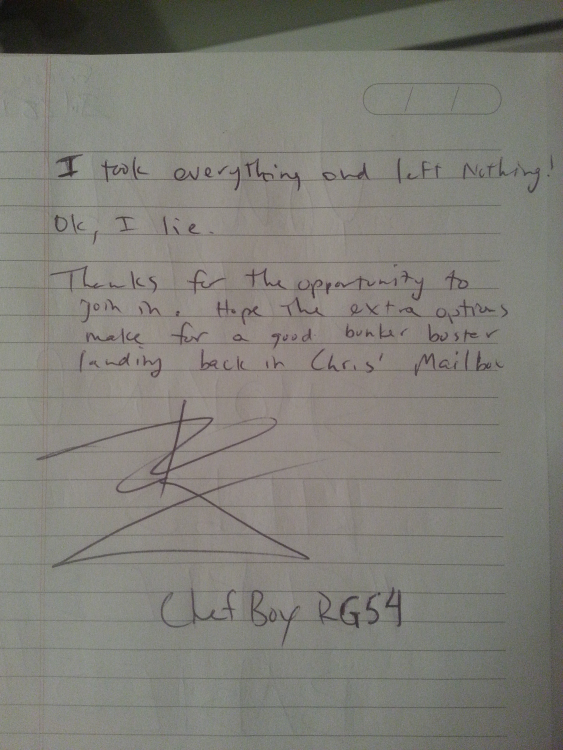 I took everything and left Nothing!
Ok, I lie.
Thanks for the opportunity to
join in. Hope the extra options
make for a good bunker buster
landing back in Chris' Mailbox
Chef Boy RG54